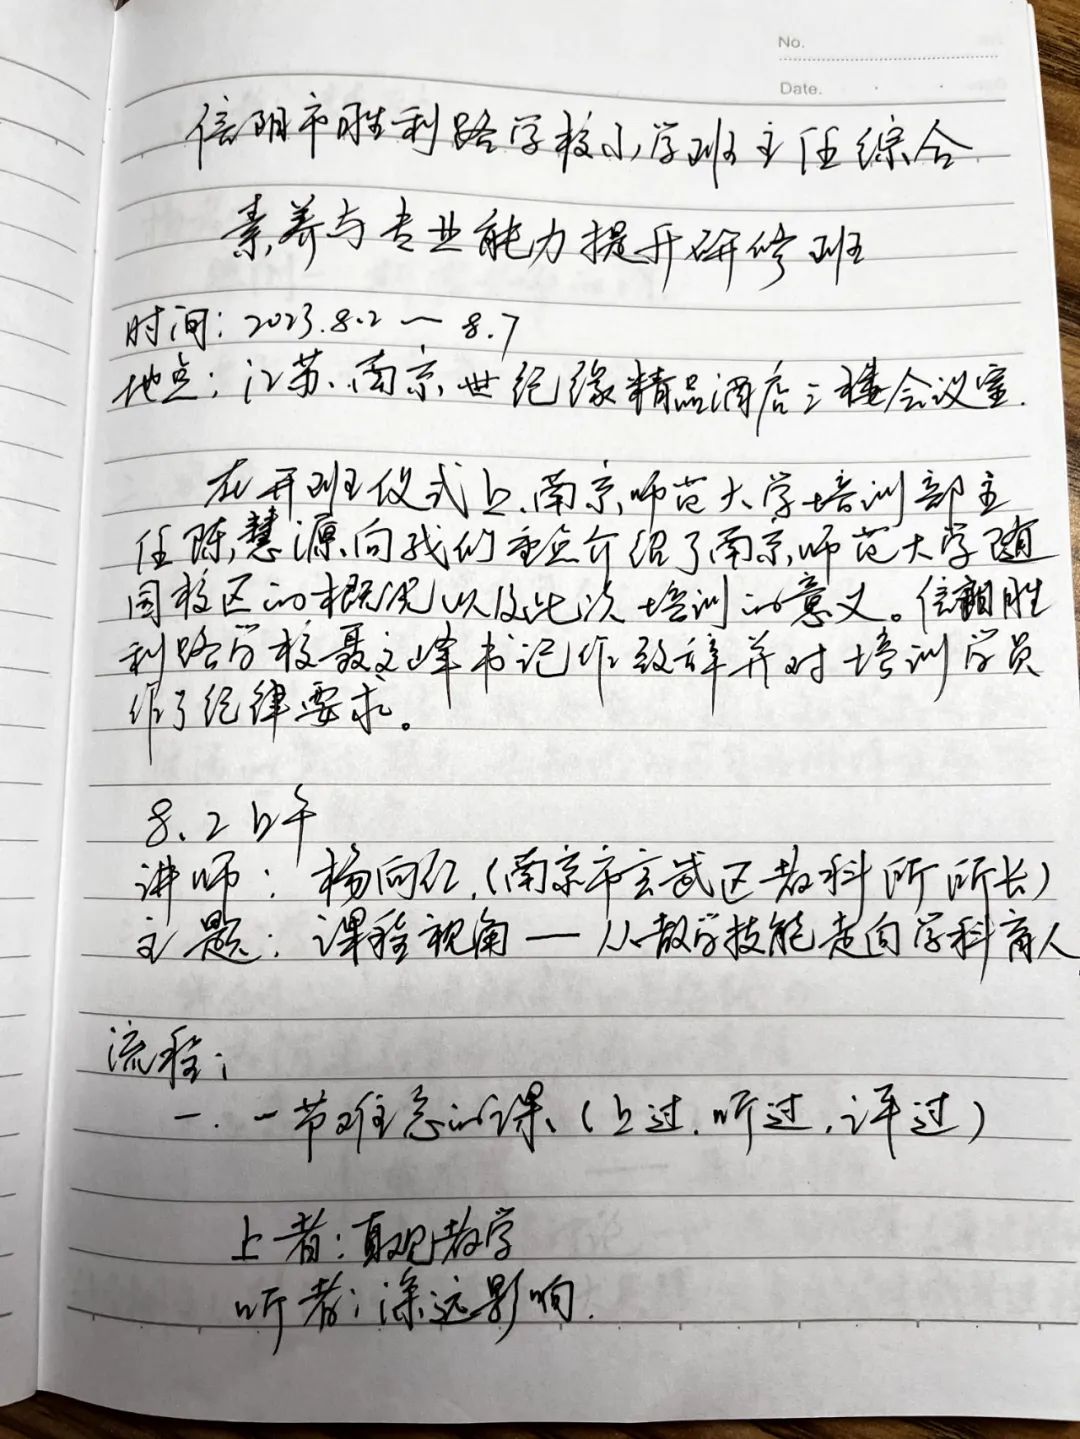 No.
Date.
信阳市胜利路学校小学班主任综合
素养与专业能力提升研修班
时间：2023.8.2 — 8.7
地点：江苏、南京世纪缘精品酒店三楼会议室.
在开班仪式上，南京师范大学培训部主
任陈慧源向我们重点介绍了南京师范大学随
园校区的概况以及此次培训的意义。信阳胜
利路学校聂文峰书记作致辞并对培训学员
作了纪律要求。
8.2上午
讲师：杨向红（南京市玄武区教科所所长）
主题：课程视角 — 从教学技能走向学科育人
流程：
一、一节难忘的课（上过，听过，评过）
上者：直观教学
听者：深远影响.